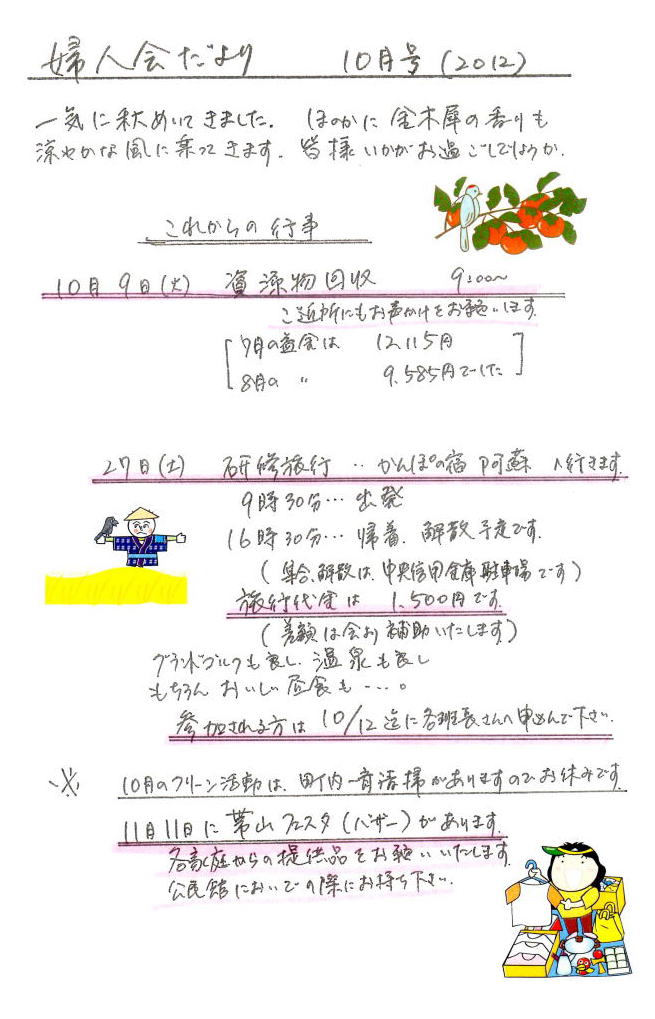 婦人会だより　　10月号(2012)
一気に秋めいてきました。 ほのかに金木犀の香りも
涼やかな風に乗ってきます。皆様いかがお過ごしでしょうか.
これからの行事
10月 9日(火)　資源物回収　9:00〜
ご近所にもお声かけをお願いします.
[7月の益金は　12,115円
8月の 〃　9,585円でした]
27日(土)　研修旅行 ‥ かんぽの宿 阿蘇 へ行きます.
9時30分… 出発
16時30分… 帰着、解散予定です.
(集合、解散は、中央信用金庫駐車場です)
旅行代金は 1,500円です.
(差額は会より補助いたします)
グランドゴルフも良し 温泉も良し
もちろん おいしい昼食も・・・。
参加される方は 10/12 迄に各班長さんへ申込んで下さい.
※ 10月のクリーン活動は、町内一斉清掃がありますのでお休みです.
11月11日に 帯山フェスタ(バザー)があります.
各家庭からの提供品をお願いいたします.
公民館においでの際にお持ち下さい.